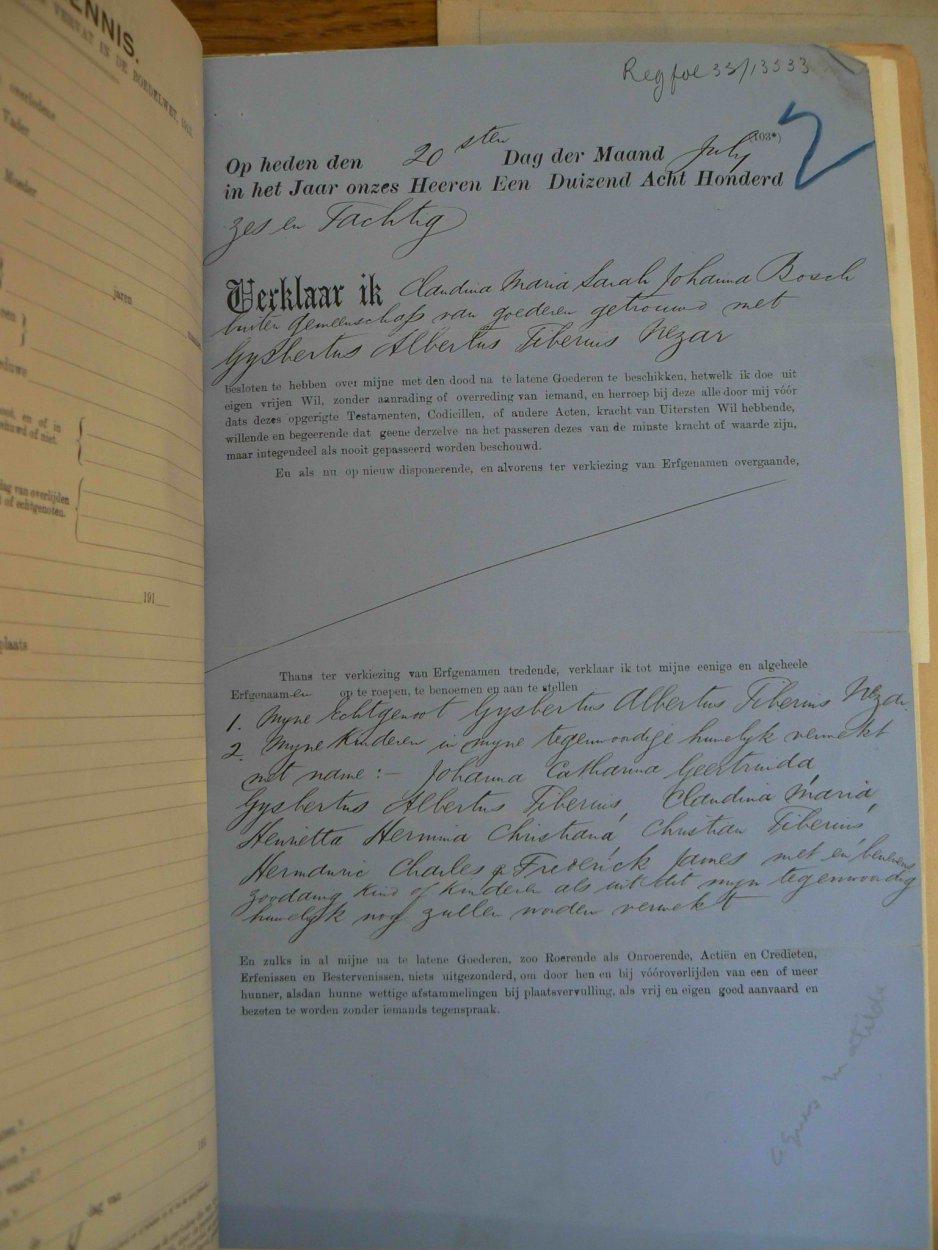 ENNIS.
VERVAT IN DE BOEDELWET, 1913.
overledene
Vader
Moeder
jaren
dag van overlijden
of echtgenoten.
191
plaats
dag van
Reg foe 33/13333
2
(103*)
Op heden den 20sten Dag der Maand July
in het Jaar onzes Heeren Een Duizend Acht Honderd
zes en Tachtig
Verklaar ik Claudina Maria Sarah Johanna Bosch
buiten gemeenschap van goederen getrouwd met
Gysbertus Albertus Tiberius Nezar
besloten te hebben over mijne met den dood na te latene Goederen te beschikken, hetwelk ik doe uit
eigen vrijen Wil, zonder aanrading of overreding van iemand, en herroep bij deze alle door mij vóór
dats dezes opgerigte Testamenten, Codicillen, of andere Acten, kracht van Uitersten Wil hebbende,
willende en begeerende dat geene derzelve na het passeren dezes van de minste kracht of waarde zijn,
maar integendeel als nooit gepasseerd worden beschouwd.
En als nu op nieuw disponerende, en alvorens ter verkiezing van Erfgenamen overgaande,
Thans ter verkiezing van Erfgenamen tredende, verklaar ik tot mijne eenige en algeheele
Erfgenaamen op te roepen, te benoemen en aan te stellen
1. Myne Echtgenoot Gysbertus Albertus Tiberius Nezar.
2. Myne Kinderen in myne tegenwoordige huwelyk verwekt
met name :— Johanna Catharina Geertruida
Gysbertus Albertus Tiberius, Claudina Maria,
Henrietta Hermina Christiana, Christian Tiberius,
Charles & Frederick James met en benevens
zoodanig Kind of Kinderen als uit dit myn tegenwoordig
huwelyk nog zullen worden verwekt
En zulks in al mijne na te latene Goederen, zoo Roerende als Onroerende, Actiën en Credieten,
Erfenissen en Bestervenissen, niets uitgezonderd, om door hen en bij vóóroverlijden van een of meer
hunner, alsdan hunne wettige afstammelingen bij plaatsvervulling, als vrij en eigen goed aanvaard en
bezeten te worden zonder iemands tegenspraak.
Agnes Matilda